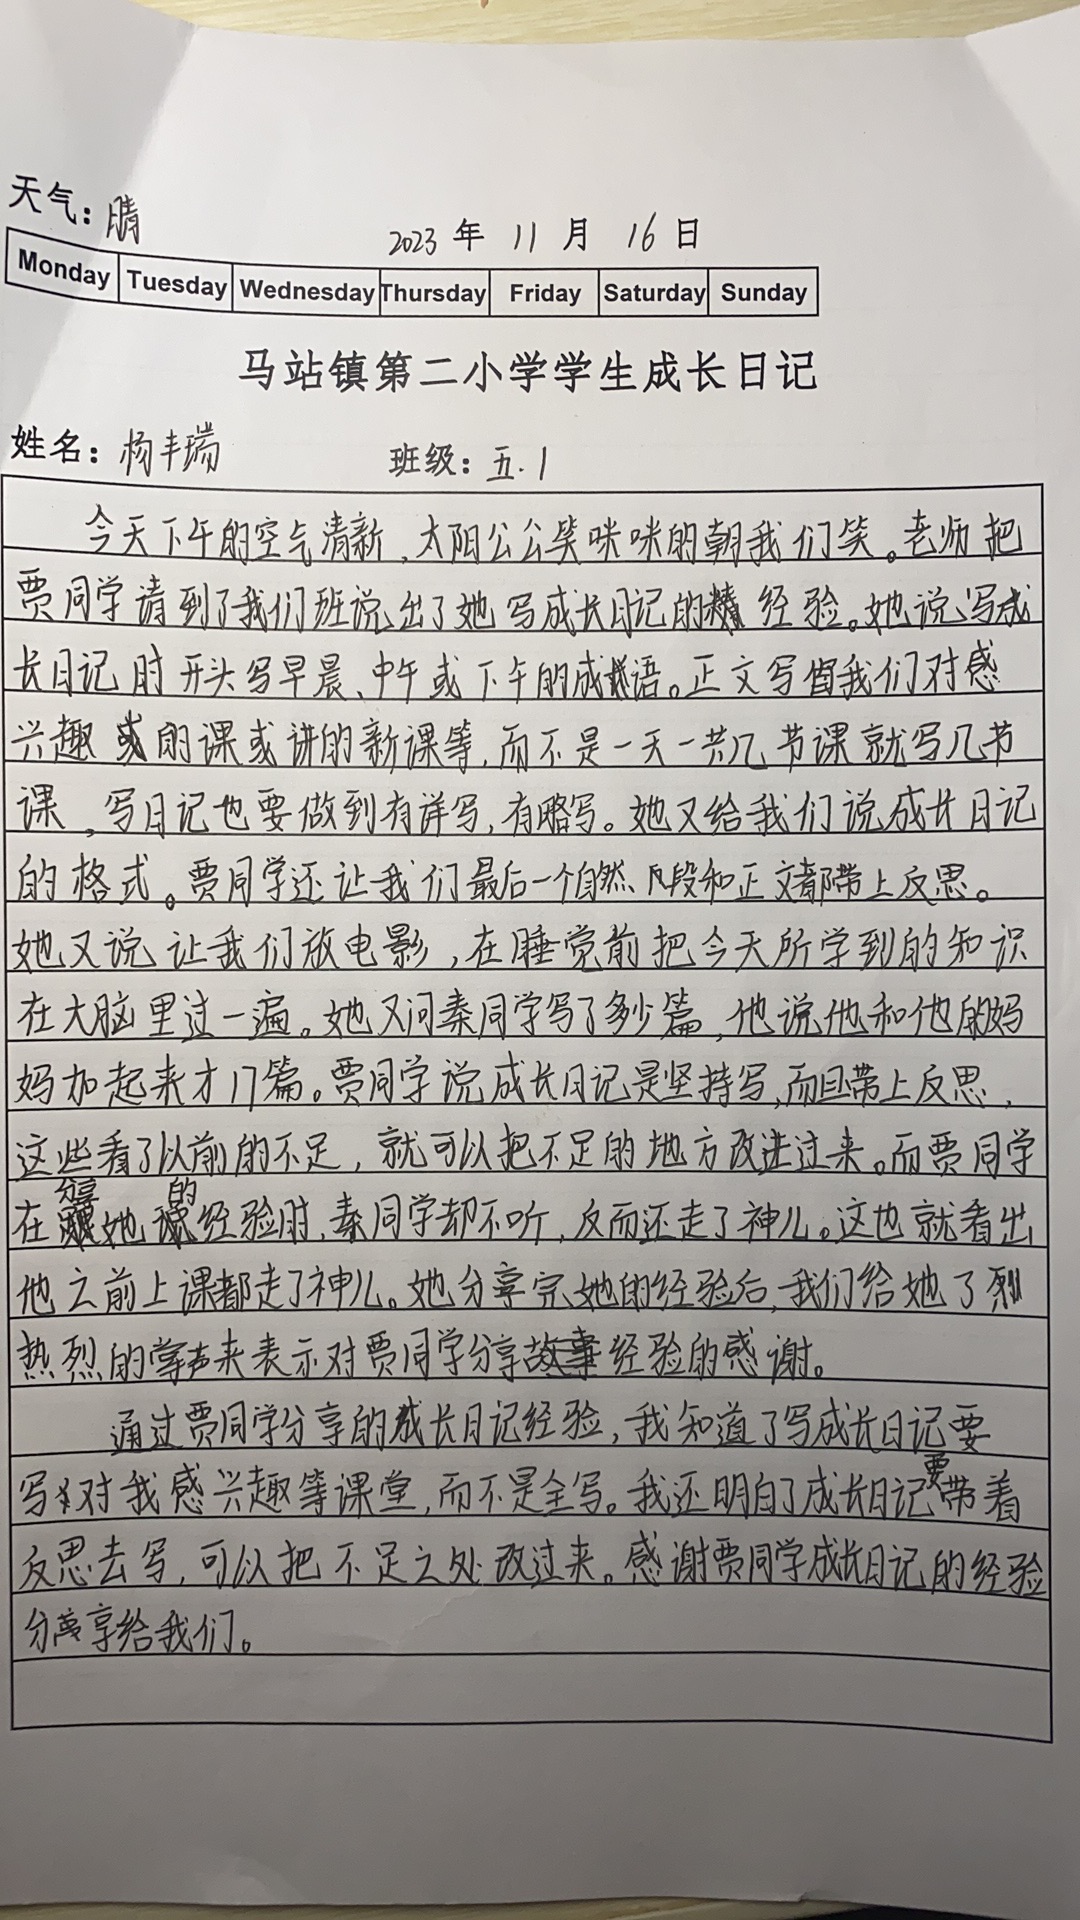 天气：晴
2023 年 11 月 16 日
Monday Tuesday Wednesday Thursday Friday Saturday Sunday
马站镇第二小学学生成长日记
姓名：杨丰瑞 班级：五.1
今天下午的空气清新，太阳公公笑咪咪的朝我们笑。老师把
贾同学请到了我们班说出了她写成长日记的经验。她说写成
长日记时开头写早晨、中午或下午的成语。正文写省我们对感
兴趣或的课或讲的新课等，而不是一天一共几节课就写几节
课，写日记也要做到有详写，有略写。她又给我们说成长日记
的格式。贾同学还让我们最后一个自然段和正文都带上反思。
她又说让我们放电影，在睡觉前把今天所学到的知识
在大脑里过一遍。她又问秦同学写了多少篇，他说他和他的妈
妈加起来才17篇。贾同学说成长日记是坚持写，而且带上反思，
这些看了以前的不足，就可以把不足的地方改进过来。而贾同学
在分享她的经验时，秦同学却不听，反而还走了神儿。这也就看出
他之前上课都走了神儿。她分享完她的经验后，我们给她了
热烈的掌声来表示对贾同学分享经验的感谢。
通过贾同学分享的成长日记经验，我知道了写成长日记要
写对我感兴趣等课堂，而不是全写。我还明白了成长日记要带着
反思去写，可以把不足之处改过来。感谢贾同学成长日记的经验
分享给我们。